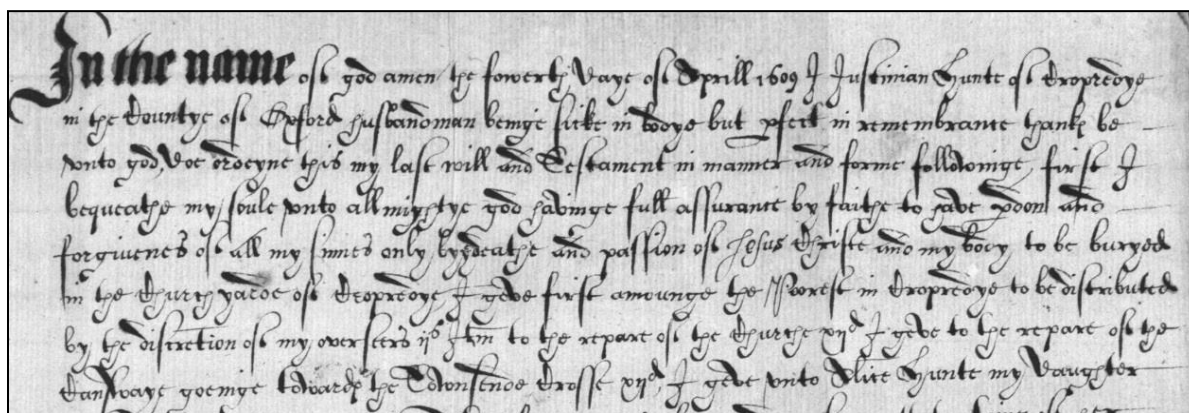 In the name off god amen the fowerth daye off Aprill 1609 I Justinian Hunte off Cropredye
in the Countye off Oxford husbandman beinge sicke in bodye but pfect in remembrance thankes be
unto god, doe ordeyne this my last will and Testament in manner and forme followinge, first I
bequeathe my soule unto allmightye god havinge full assurance by faithe to have pdon and
forgivenes off all my sinnes only by deathe and passion off Jesus Christe and my body to be buryed
in the Church yarde off Cropredye I geve first amounge the Poorest in Cropredye to be distributed
by the discretion off my overseers iis Itm to the repare off the Churche xiid I geve to the repare off the
Causwaye goeinge towardes the Townsende Crosse xiid, I geve unto Alice Hunte my daughter